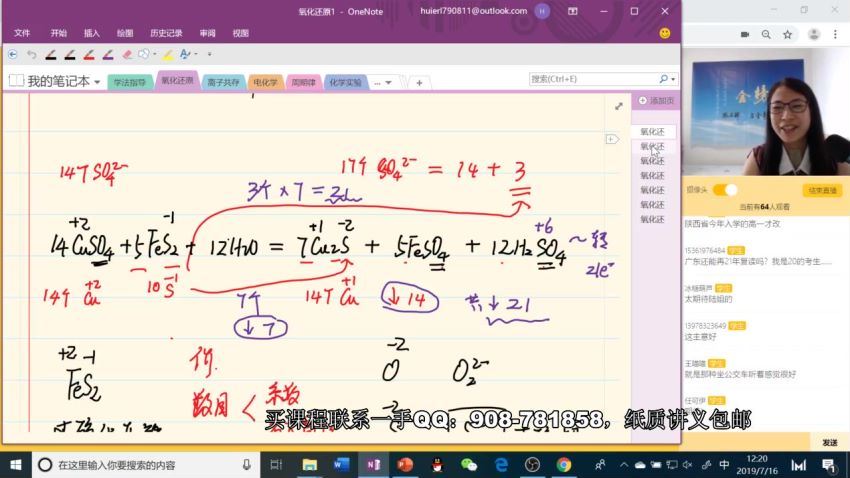 氧化还原1 - OneNote
huierl790811@outlook.com
H
文件 开始 插入 绘图 历史记录 审阅 视图
我的笔记本
学法指导 氧化还原 离子共存 电化学 周期律 化学实验 ...
搜索(Ctrl+E)
添加页
氧化还
氧化还
氧化还
氧化还
氧化还
氧化还
氧化还
14个SO₄²⁻
17个SO₄²⁻ = 14 + 3
3个 × 7 = 21
+2 -1 +1 -2 +6
14CuSO₄ + 5FeS₂ + 12H₂O = 7Cu₂S + 5FeSO₄ + 12H₂SO₄ ~ 转
21e⁻
14个 Cu⁺² 10 S⁻¹
7个
↓7
14个 Cu⁺¹
↓14
共↓21
+2 -1
FeS₂
价
数目 < 系数
-2
O O₂²⁻
-2
买课程联系一手QQ：908-781858，纸质讲义包邮
摄像头
结束直播
当前有64人观看
陕西省今年入学的高一才改
15361976484 学生
广东还能再21年复读吗？我是20的考生......
冰糖葫芦 学生
太期待陆姐的
13978323649 学生
这主意好
王喵喵 学生
就是那种坐公交车听着感觉很好
任可伊 学生
发送
在这里输入你要搜索的内容
中
12:20
2019/7/16